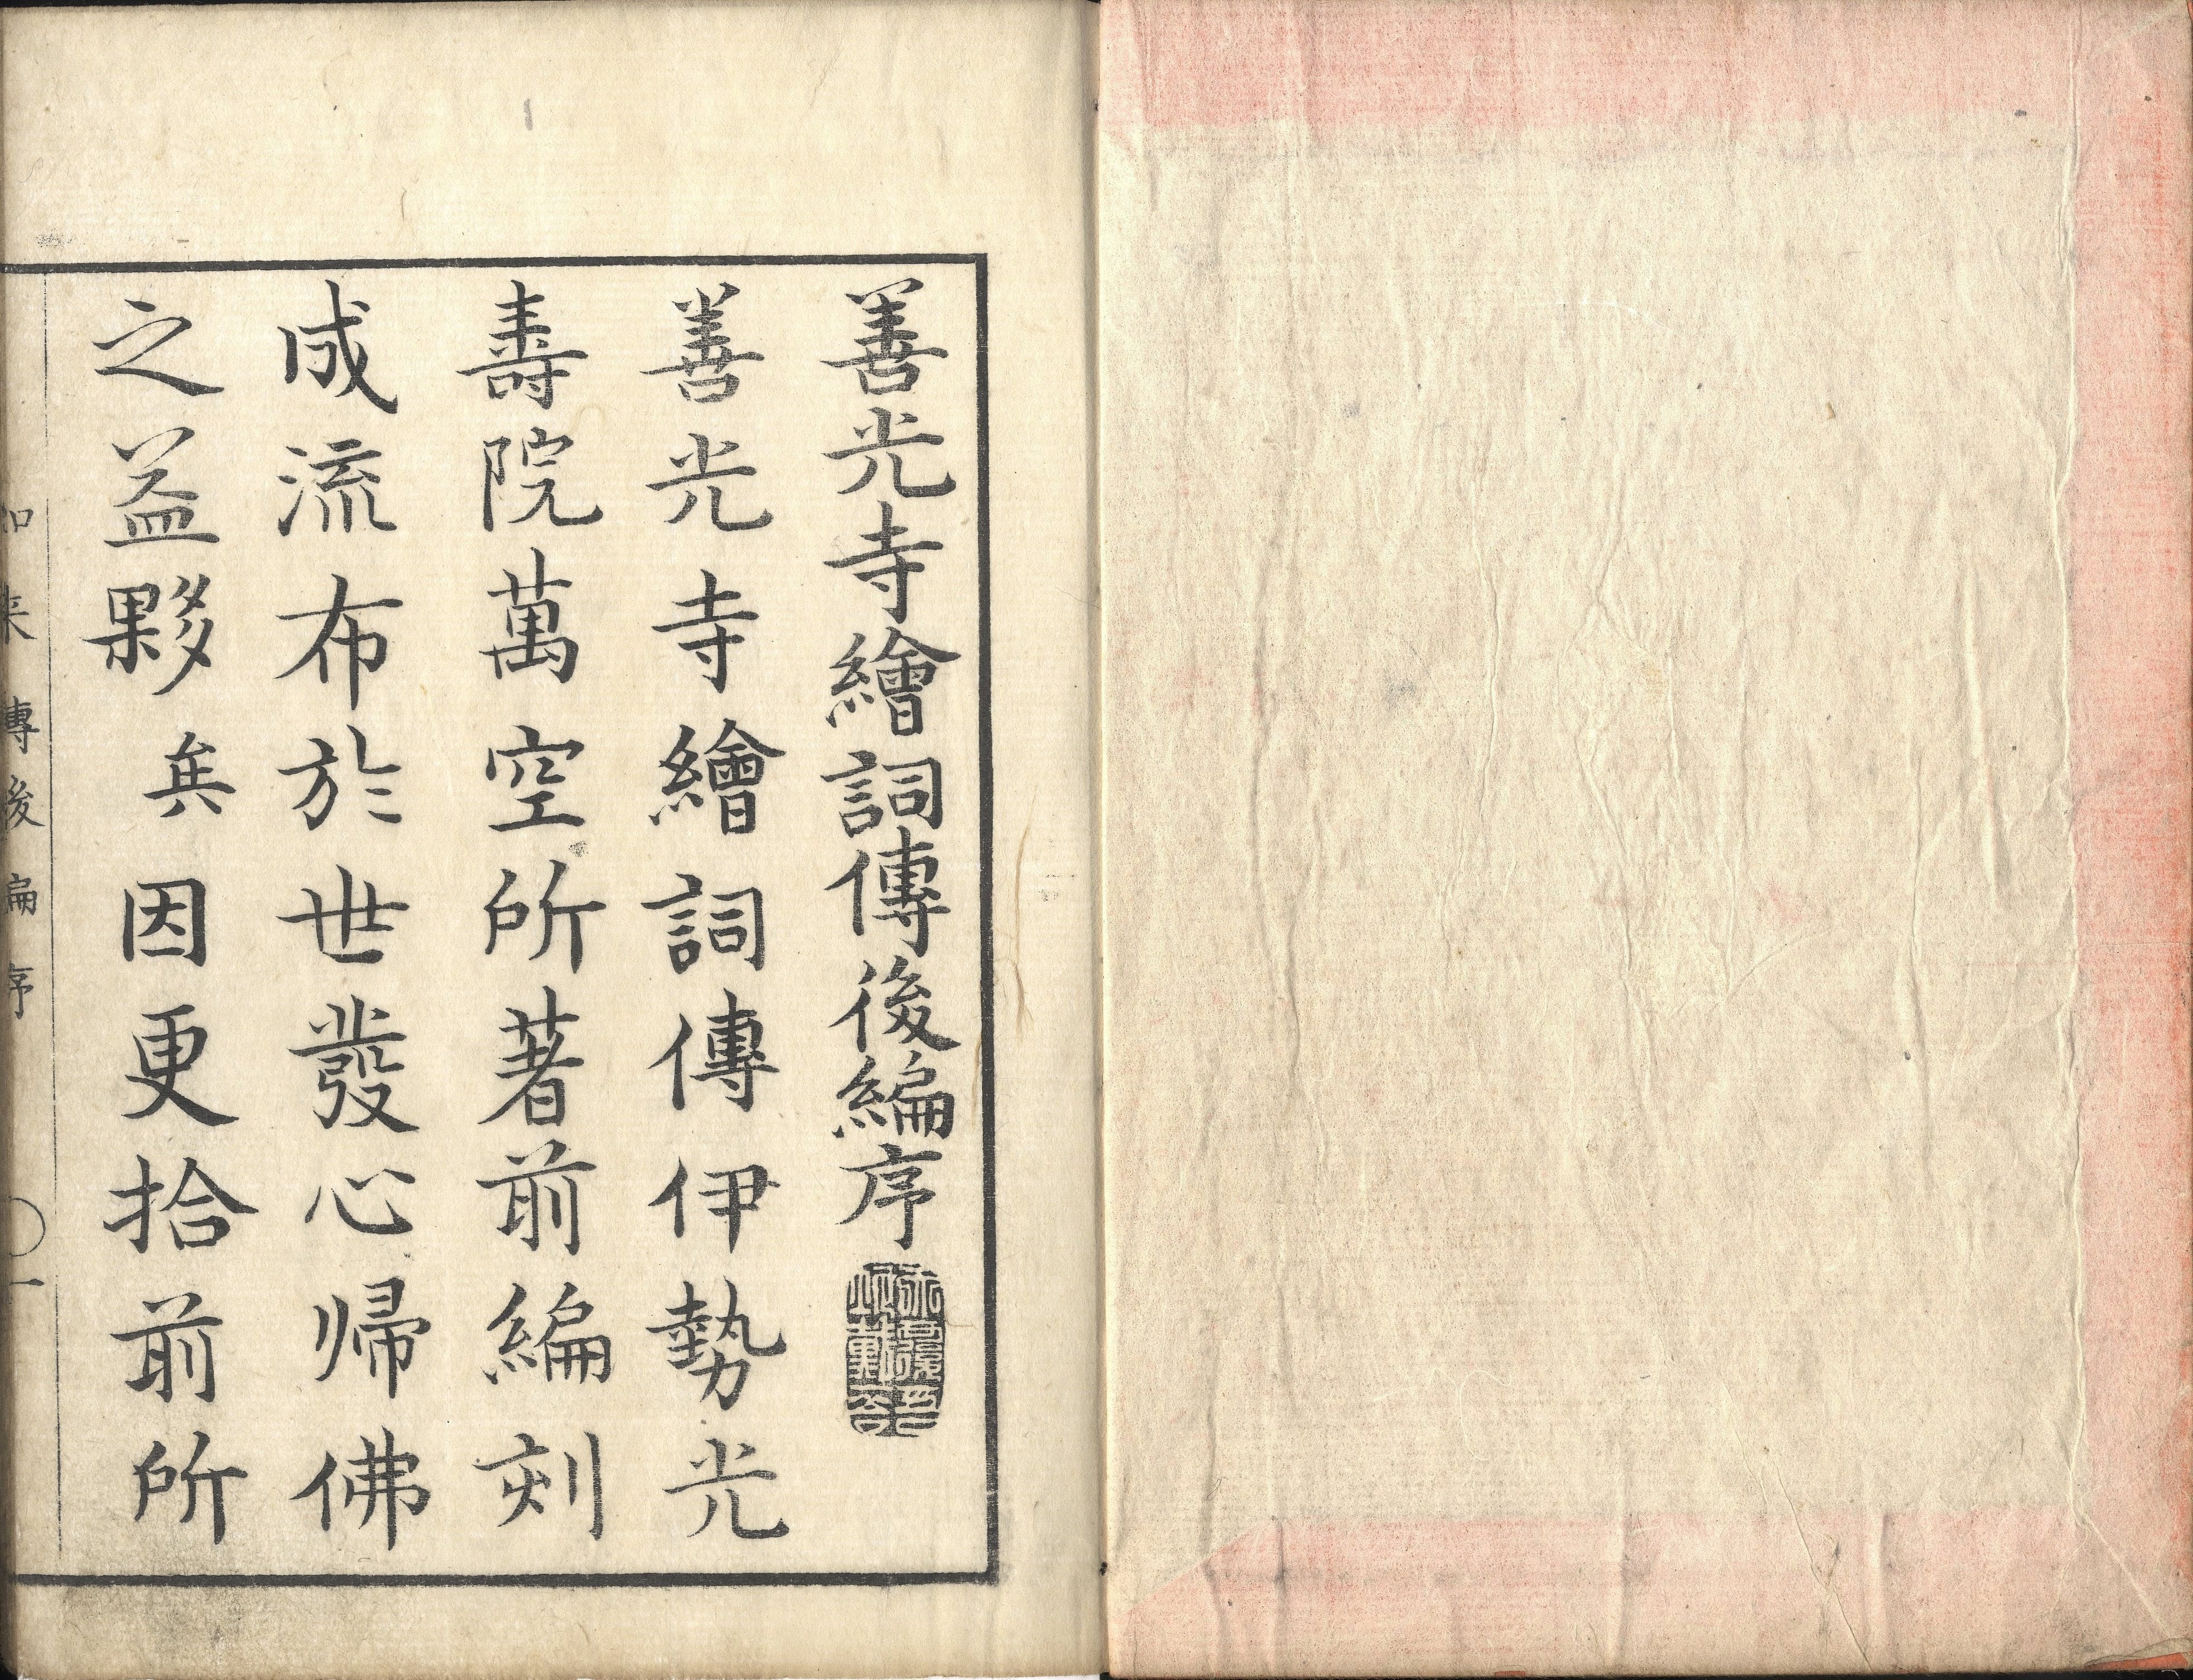 善光寺繪詞傳後編序
善光寺繪詞傳伊勢光
壽院萬空所著前編刻
成流布於世發心帰佛
之益夥矣因更拾前所
如来傳後編序　〇一